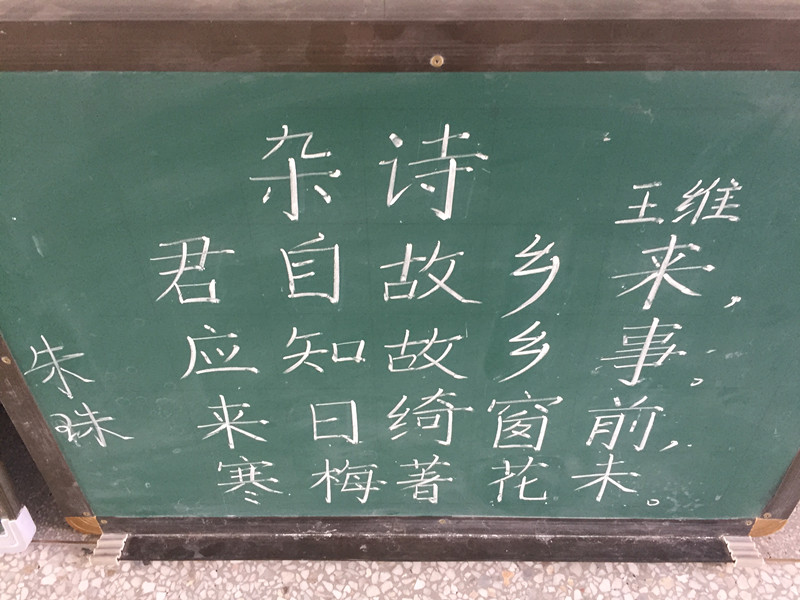 杂诗
王维
君自故乡来，
应知故乡事。
来日绮窗前，
寒梅著花未。
朱珠